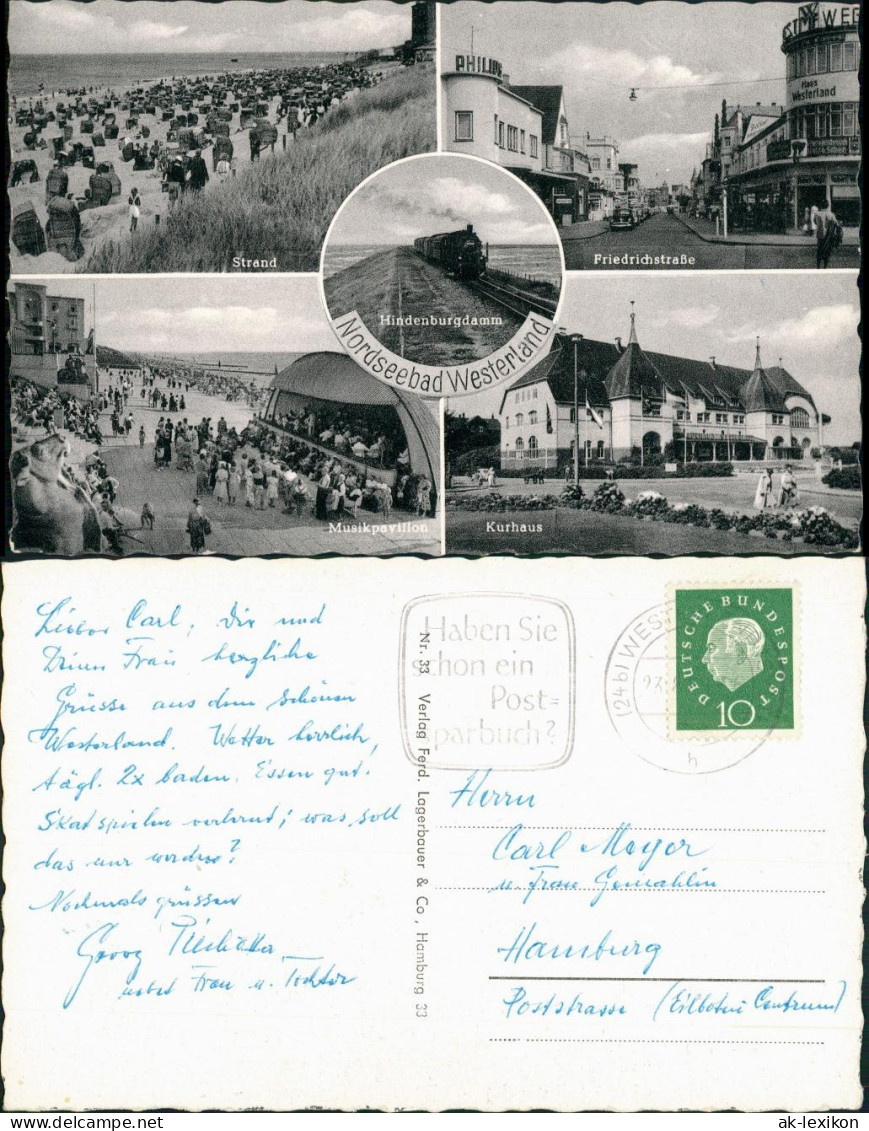 PHILIPS
Haus
Westerland
Strand
Friedrichstraße
Hindenburgdamm
Nordseebad Westerland
Musikpavillon
Kurhaus
Lieber Carl, Dir und
Deiner Frau herzliche
Grüsse aus dem schönen
Westerland. Wetter herrlich,
tägl. 2x baden. Essen gut.
Skat spielen verlernt; was soll
das nur werden?
Nochmals grüssen
Georg
nebst Frau u. Tochter
Nr. 33 Verlag Ferd. Lagerbauer & Co., Hamburg 33
Haben Sie
schon ein
Post=
sparbuch?
(24b) WEST
h
DEUTSCHE BUNDESPOST
10
Herrn
Carl Meyer
u. Frau Gemahlin
Hamburg
Poststrasse (Eilboten Centrum)
ak-ansichtskarten.de
ak-lexikon.com